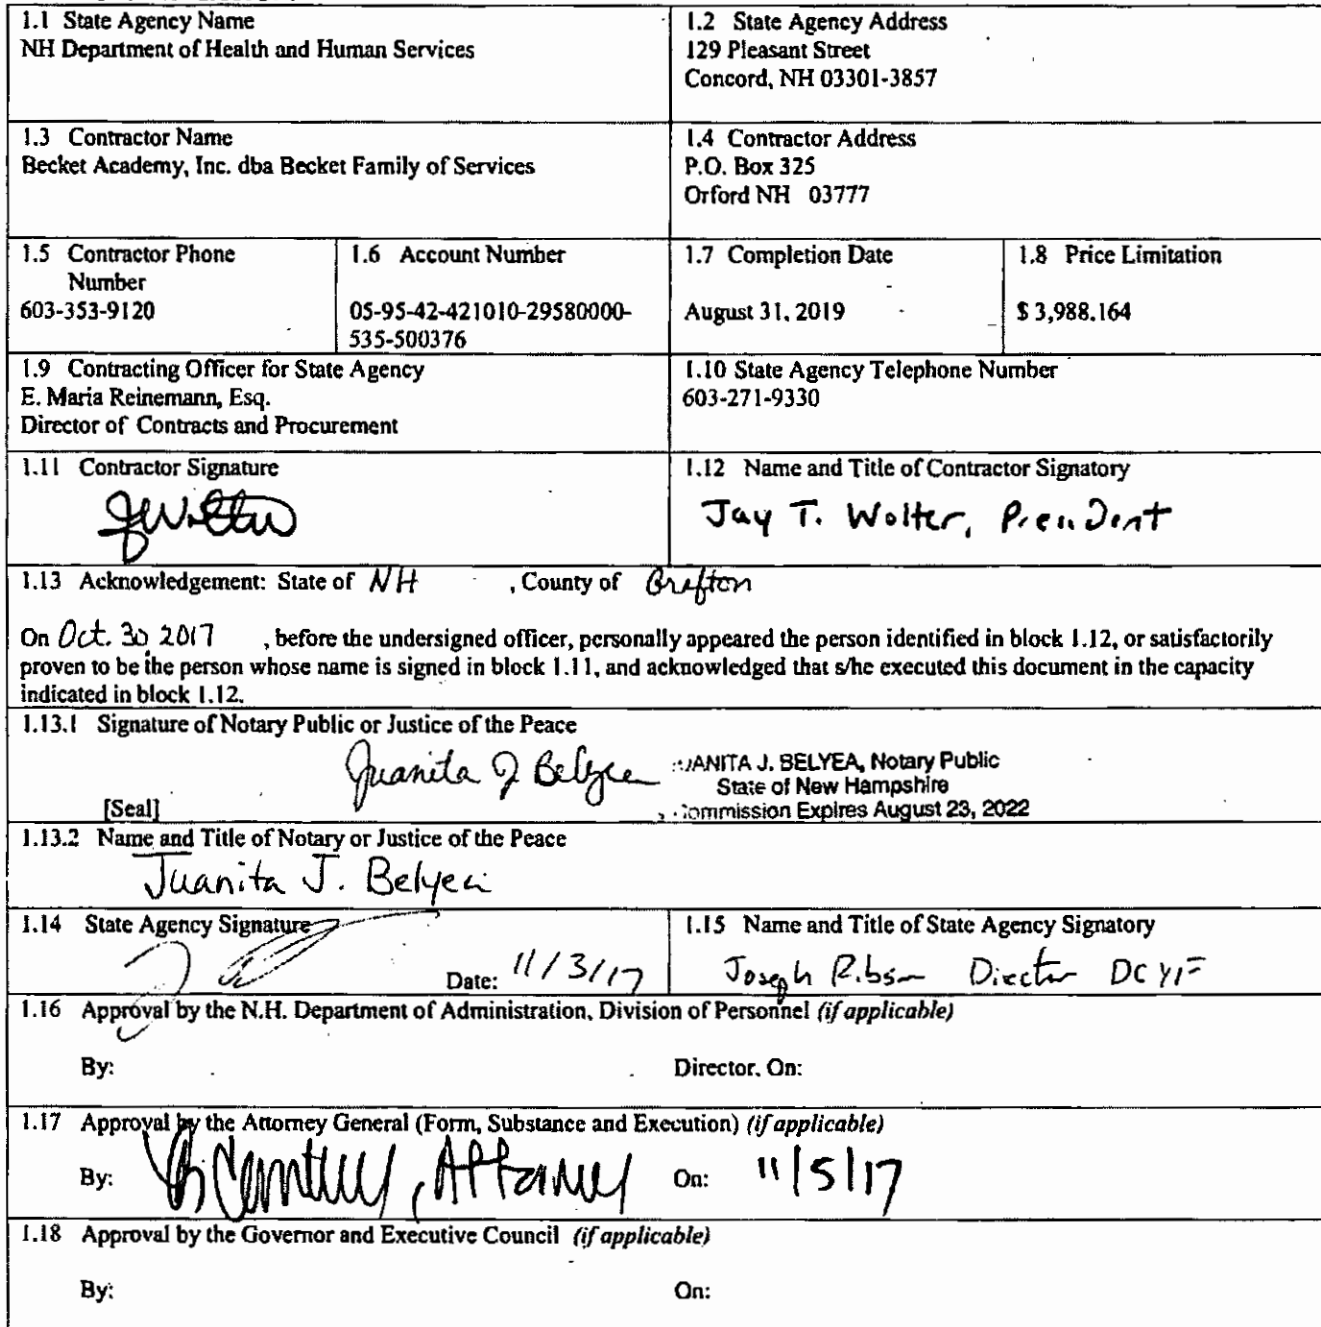 1.1 State Agency Name
NH Department of Health and Human Services
1.2 State Agency Address
129 Pleasant Street
Concord, NH 03301-3857
1.3 Contractor Name
Becket Academy, Inc. dba Becket Family of Services
1.4 Contractor Address
P.O. Box 325
Orford NH 03777
1.5 Contractor Phone
Number
603-353-9120
1.6 Account Number
05-95-42-421010-29580000-
535-500376
1.7 Completion Date
August 31, 2019
1.8 Price Limitation
$ 3,988.164
1.9 Contracting Officer for State Agency
E. Maria Reinemann, Esq.
Director of Contracts and Procurement
1.10 State Agency Telephone Number
603-271-9330
1.11 Contractor Signature
1.12 Name and Title of Contractor Signatory
Jay T. Wolter, President
1.13 Acknowledgement: State of NH , County of Grafton
On Oct. 30, 2017 , before the undersigned officer, personally appeared the person identified in block 1.12, or satisfactorily
proven to be the person whose name is signed in block 1.11, and acknowledged that s/he executed this document in the capacity
indicated in block 1.12.
1.13.1 Signature of Notary Public or Justice of the Peace
Juanita J Belyea
[Seal]
JANITA J. BELYEA, Notary Public
State of New Hampshire
Commission Expires August 23, 2022
1.13.2 Name and Title of Notary or Justice of the Peace
Juanita J. Belyea
1.14 State Agency Signature
Date: 11/3/17
1.15 Name and Title of State Agency Signatory
Joseph Ribsam Director DCYF
1.16 Approval by the N.H. Department of Administration, Division of Personnel (if applicable)
By: Director, On:
1.17 Approval by the Attorney General (Form, Substance and Execution) (if applicable)
By: , Attorney On: 11/5/17
1.18 Approval by the Governor and Executive Council (if applicable)
By: On: